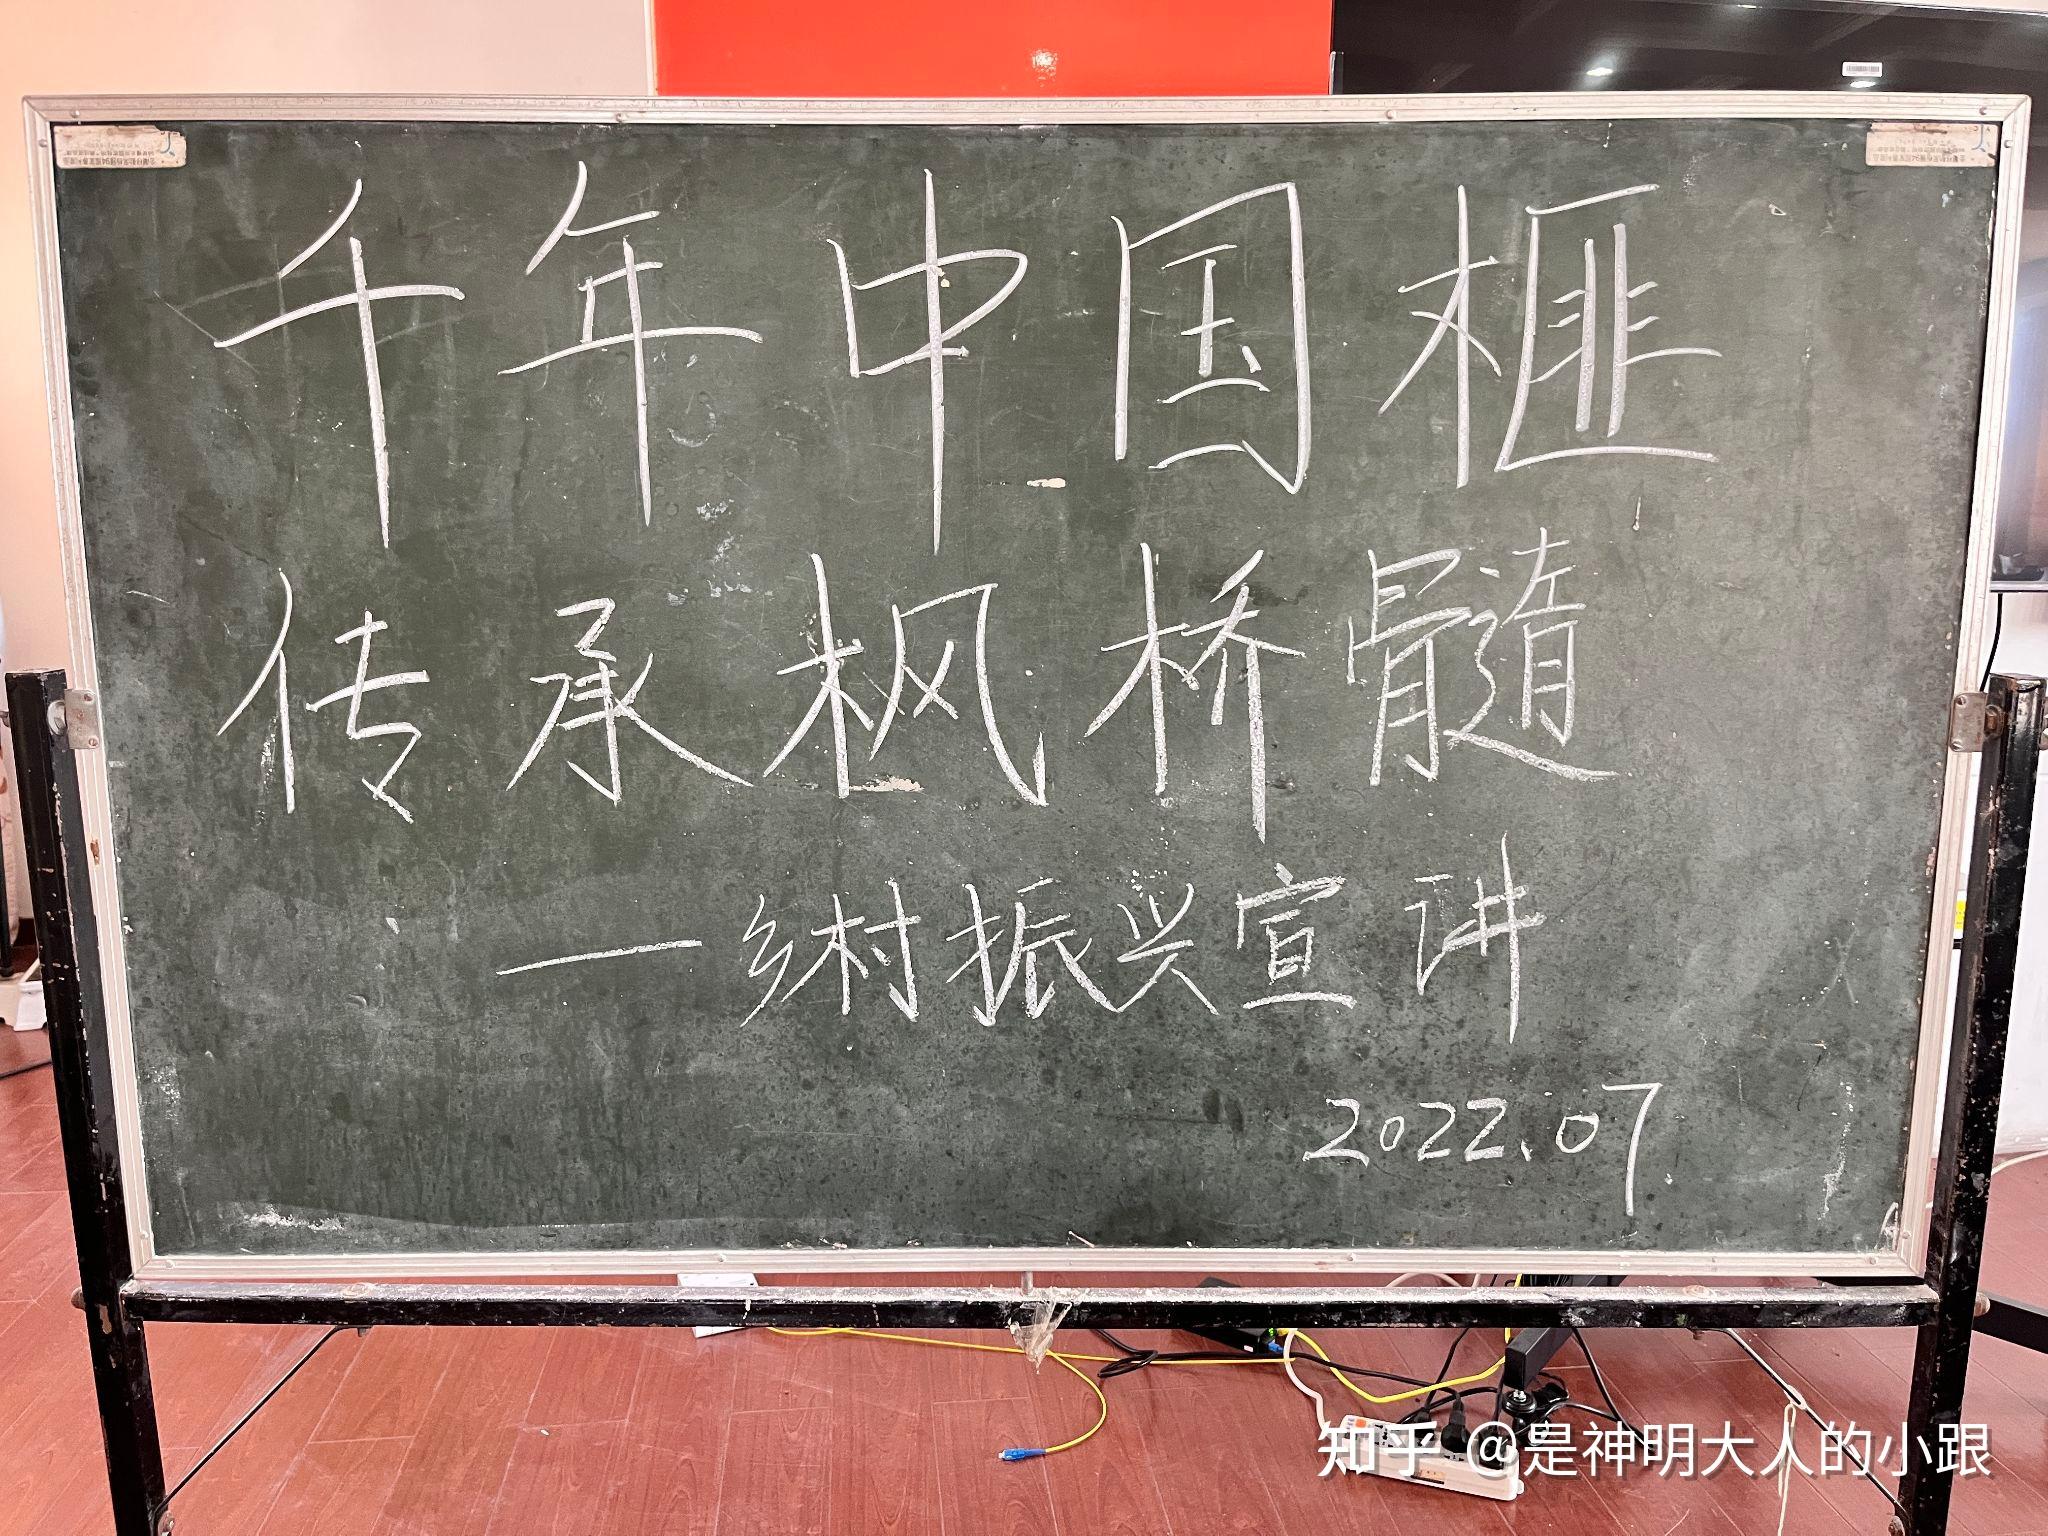 千年中国榧
传承枫桥髓
—乡村振兴宣讲
2022.07
知乎 @是神明大人的小跟